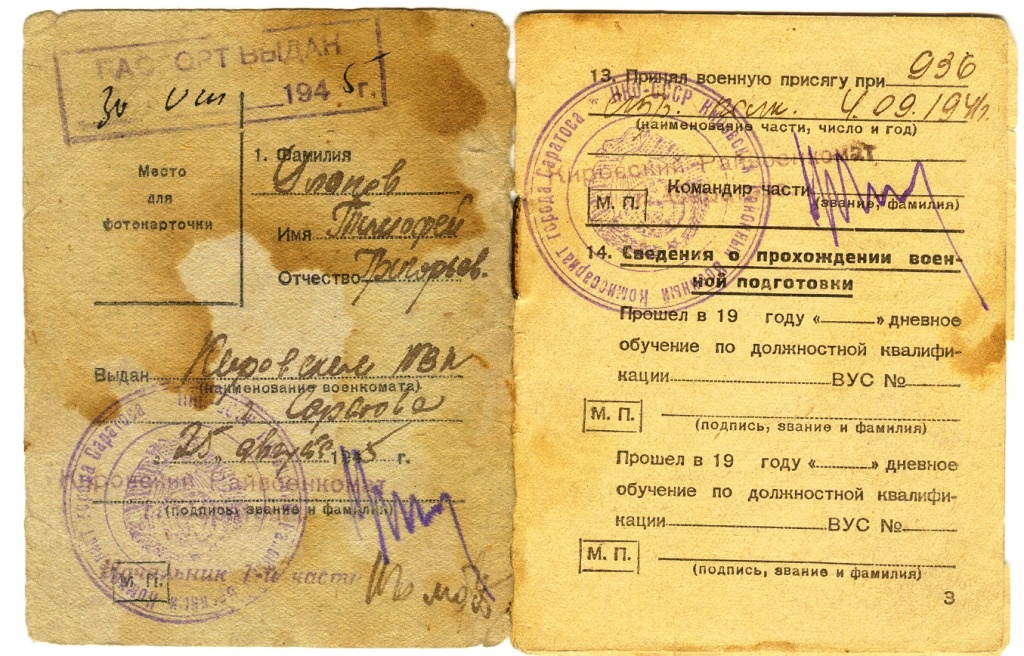 ПАСПОРТ ВЫДАН
30 VIII 1945 г.
Место
для
фотокарточки
1. Фамилия
Имя Тимофей
Отчество Григорьев.
Выдан Кировским РВК
(наименование военкомата)
г. Саратова
„25„ августа 1945 г.
Кировский Райвоенкомат
(подпись, звание и фамилия)
Начальник 1-й части
М. П.
13. Принял военную присягу при 936
4.09.1941г.
(наименование части, число и год)
Кировский Райвоенкомат
Командир части
М. П.
(звание, фамилия)
14. Сведения о прохождении воен-
ной подготовки
Прошел в 19 году «» дневное
обучение по должностной квалифи-
кации ВУС №
М. П.
(подпись, звание и фамилия)
Прошел в 19 году «» дневное
обучение по должностной квалифи-
кации ВУС №
М. П.
(подпись, звание и фамилия)
3